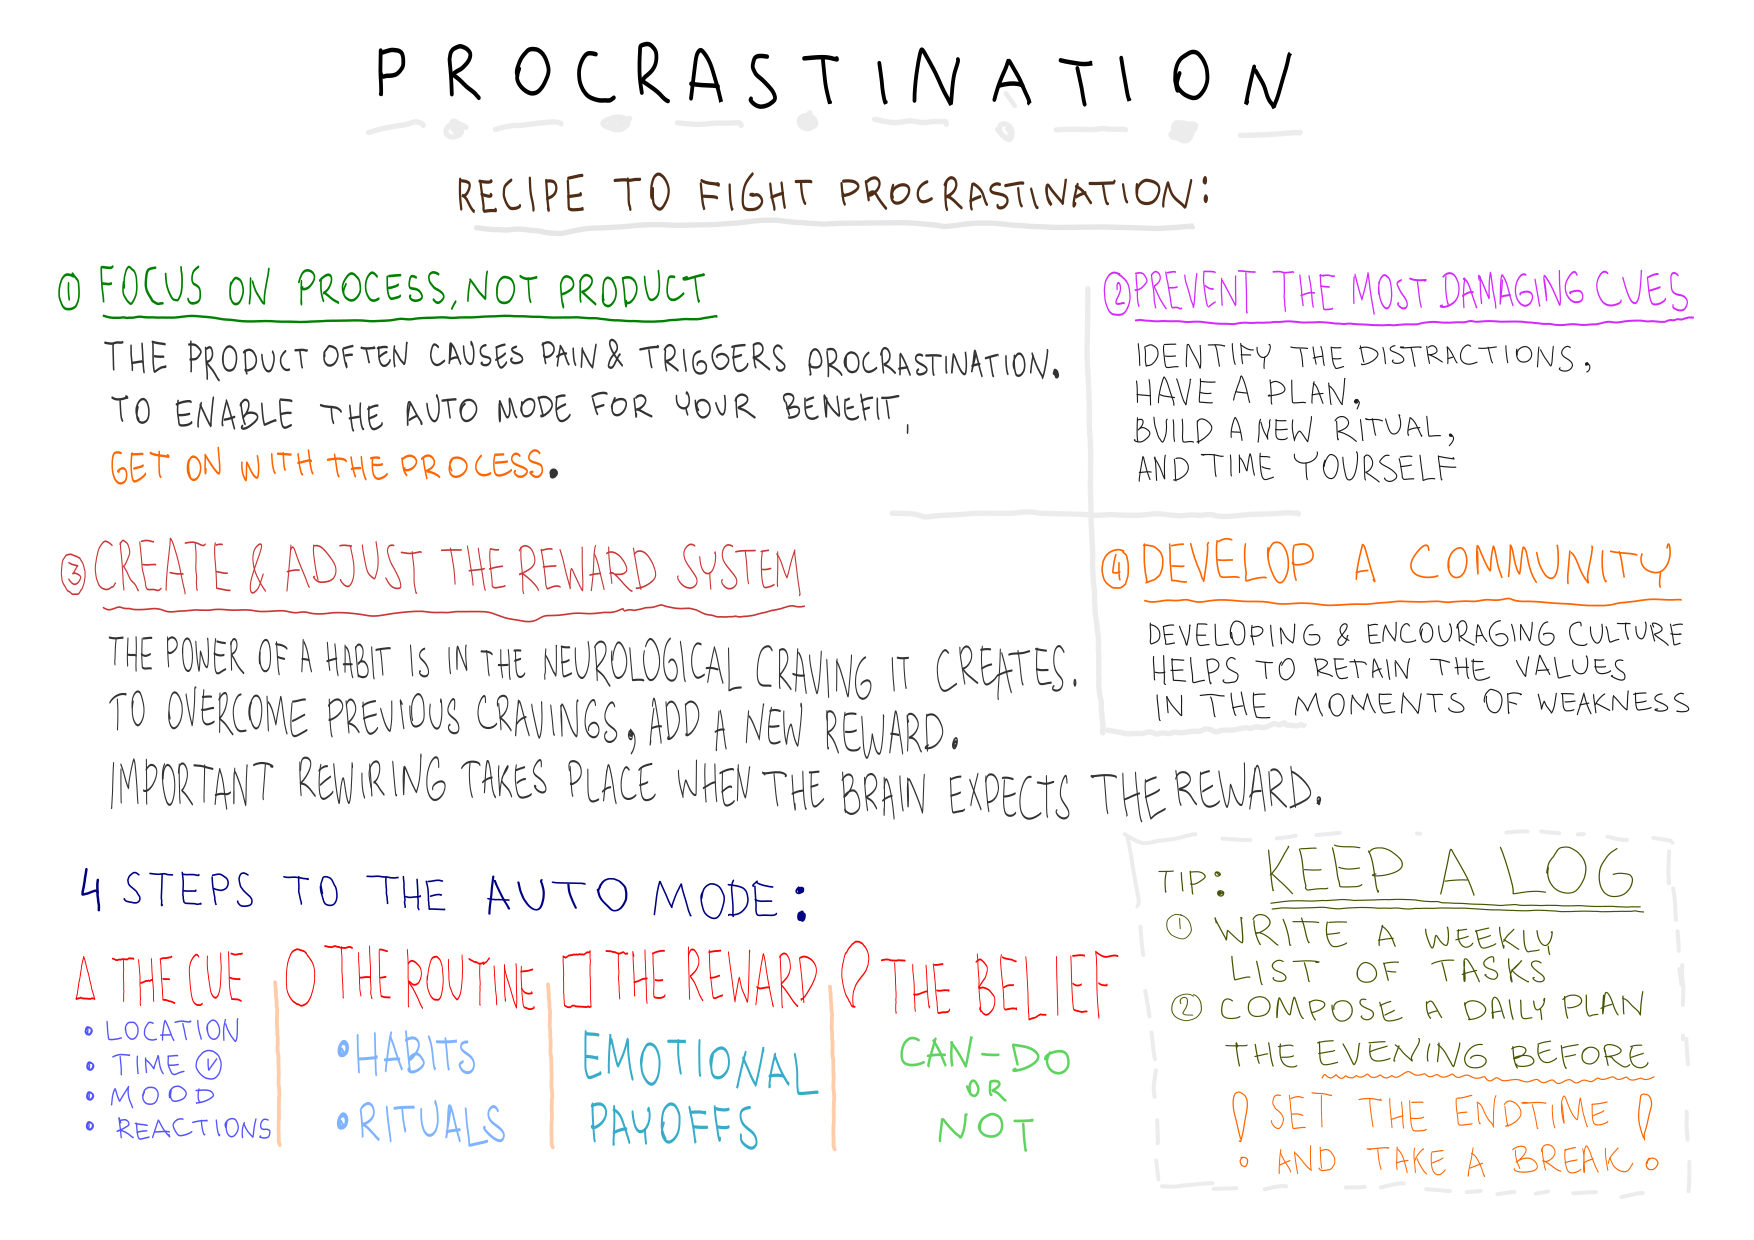 PROCRASTINATION
RECIPE TO FIGHT PROCRASTINATION:
① FOCUS ON PROCESS, NOT PRODUCT
THE PRODUCT OFTEN CAUSES PAIN & TRIGGERS PROCRASTINATION.
TO ENABLE THE AUTO MODE FOR YOUR BENEFIT,
GET ON WITH THE PROCESS.
② PREVENT THE MOST DAMAGING CUES
IDENTIFY THE DISTRACTIONS,
HAVE A PLAN,
BUILD A NEW RITUAL,
AND TIME YOURSELF
③ CREATE & ADJUST THE REWARD SYSTEM
THE POWER OF A HABIT IS IN THE NEUROLOGICAL CRAVING IT CREATES.
TO OVERCOME PREVIOUS CRAVINGS, ADD A NEW REWARD.
IMPORTANT REWIRING TAKES PLACE WHEN THE BRAIN EXPECTS THE REWARD.
④ DEVELOP A COMMUNITY
DEVELOPING & ENCOURAGING CULTURE
HELPS TO RETAIN THE VALUES
IN THE MOMENTS OF WEAKNESS
4 STEPS TO THE AUTO MODE:
THE CUE
• LOCATION
• TIME
• MOOD
• REACTIONS
THE ROUTINE
• HABITS
• RITUALS
THE REWARD
EMOTIONAL
PAYOFFS
THE BELIEF
CAN-DO
OR
NOT
TIP: KEEP A LOG
① WRITE A WEEKLY
LIST OF TASKS
② COMPOSE A DAILY PLAN
THE EVENING BEFORE
! SET THE ENDTIME !
AND TAKE A BREAK